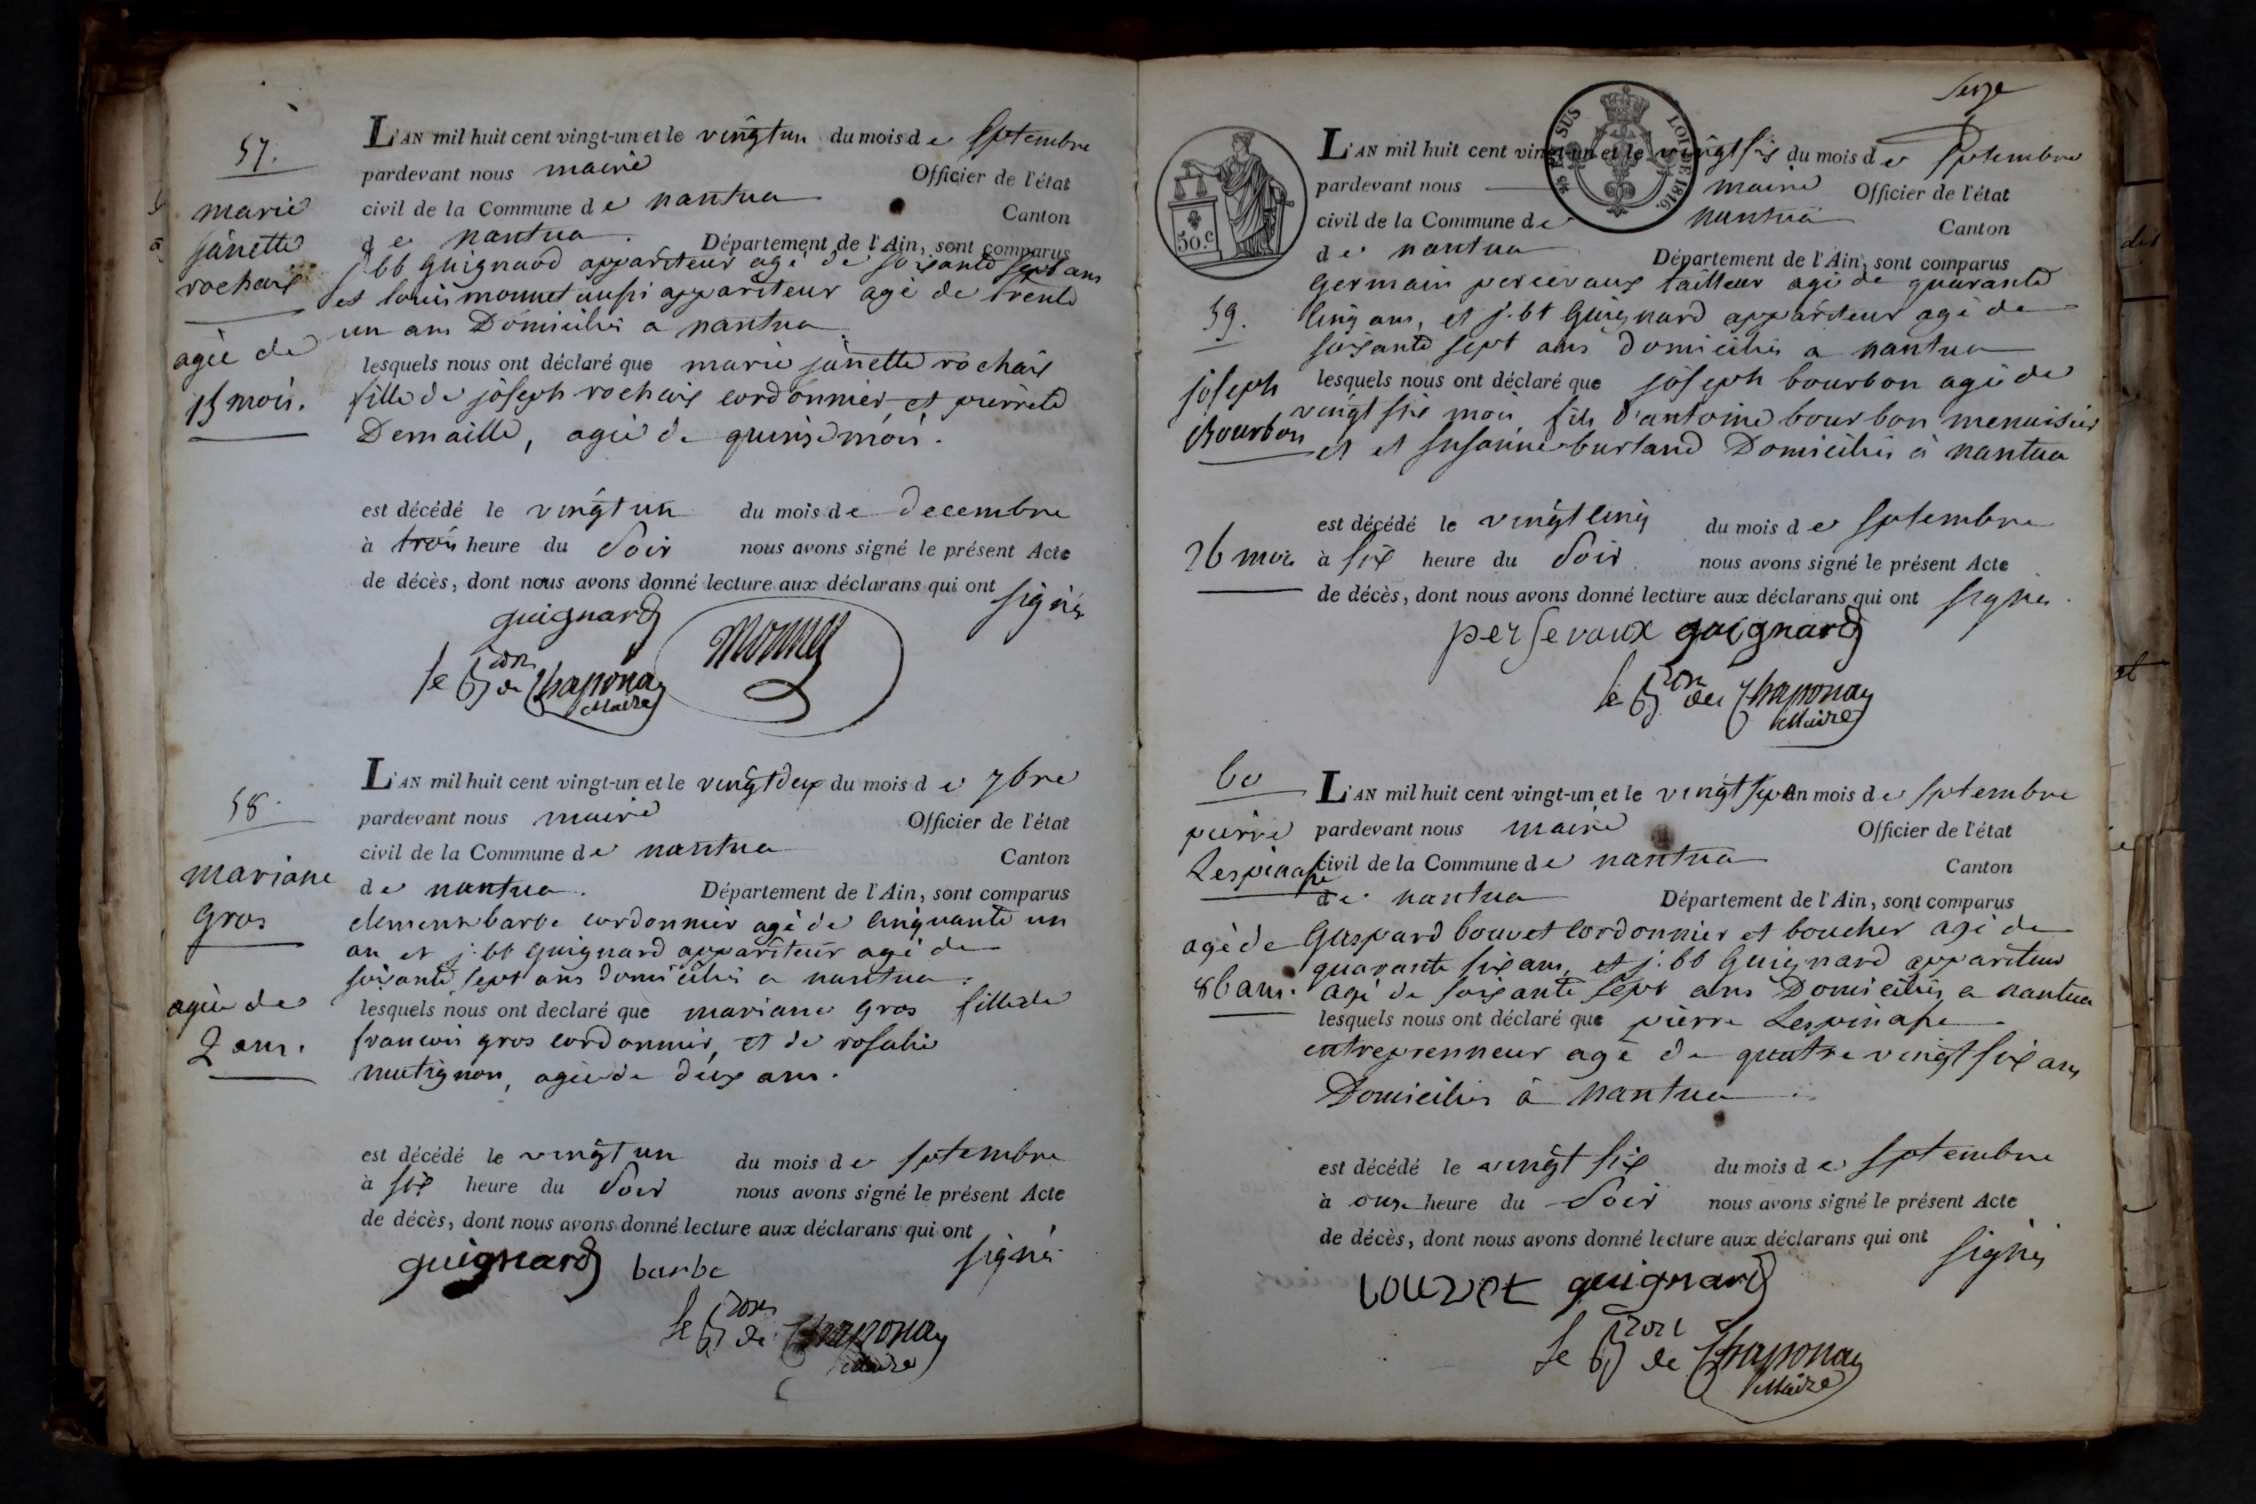 57.
marie
jànette
rochaix
agée de
15 mois.
L'AN mil huit cent vingt-un et le vingt un du mois de septembre
pardevant nous maire Officier de l'état
civil de la Commune de nantua Canton
de nantua. Département de l'Ain, sont comparus
j. bt Guignard appariteur agé de soixante sept ans
et louis monnet aussi appariteur agé de trente
un ans Domiciliés a nantua
lesquels nous ont déclaré que marie jànette rochaix
fille de joseph rochaix cordonnier, et pierrette
Demaille, agée de quinse mois.
est décédé le vingt un du mois de decembre
à trois heure du soir nous avons signé le présent Acte
de décès, dont nous avons donné lecture aux déclarans qui ont signés
guignard
monnet
le Bon de Chaponay
Maire
58.
mariane
gros
agée de
2 ans.
L'AN mil huit cent vingt-un et le vingt deux du mois de 7bre
pardevant nous maire Officier de l'état
civil de la Commune de nantua Canton
de nantua. Département de l'Ain, sont comparus
clement barbe cordonnier agé de cinquante un
an et j. bt Guignard appariteur agé de
soixante sept ans domiciliés a nantua.
lesquels nous ont declaré que mariane gros fille de
francois gros cordonnier, et de rosalie
mutignon, agée de deux ans.
est décédé le vingt un du mois de septembre
à six heure du soir nous avons signé le présent Acte
de décès, dont nous avons donné lecture aux déclarans qui ont
signés
guignard barbe
le Bon de Chaponay
Maire
seize
SUS
LOI DE 1816.
50.c
59.
joseph
Bourbon
26 mois
L'AN mil huit cent vingt-un et le vingt six du mois de septembre
pardevant nous maire Officier de l'état
civil de la Commune de nantua Canton
de nantua Département de l'Ain, sont comparus
Germain percevaux tailleur agé de quarante
cinq ans, et j. bt Guignard appariteur agé de
soixante sept ans domiciliés a nantua
lesquels nous ont déclaré que joseph bourbon agé de
vingt six mois fils d'antoine bourbon menuisier
et et susanne burland Domiciliés à nantua
est décédé le vingt cinq du mois de septembre
à six heure du soir nous avons signé le présent Acte
de décès, dont nous avons donné lecture aux déclarans qui ont signés.
persevaux guignard
le Bon de Chaponay
Maire
60
pierre
Lespinasse
agé de
86 ans.
L'AN mil huit cent vingt-un et le vingt sept du mois de septembre
pardevant nous maire Officier de l'état
civil de la Commune de nantua Canton
de nantua Département de l'Ain, sont comparus
Gaspard bouvet cordonnier et boucher agé de
quarante six ans, et j. bt Guignard appariteur
agé de soixante sept ans Domiciliés a nantua
lesquels nous ont déclaré que pierre Lespinasse
entreprenneur agé de quatre vingt six ans
Domiciliés à nantua
est décédé le vingt six du mois de septembre
à onze heure du soir nous avons signé le présent Acte
de décès, dont nous avons donné lecture aux déclarans qui ont signés
bouvet guignard
le Bon de Chaponay
Maire